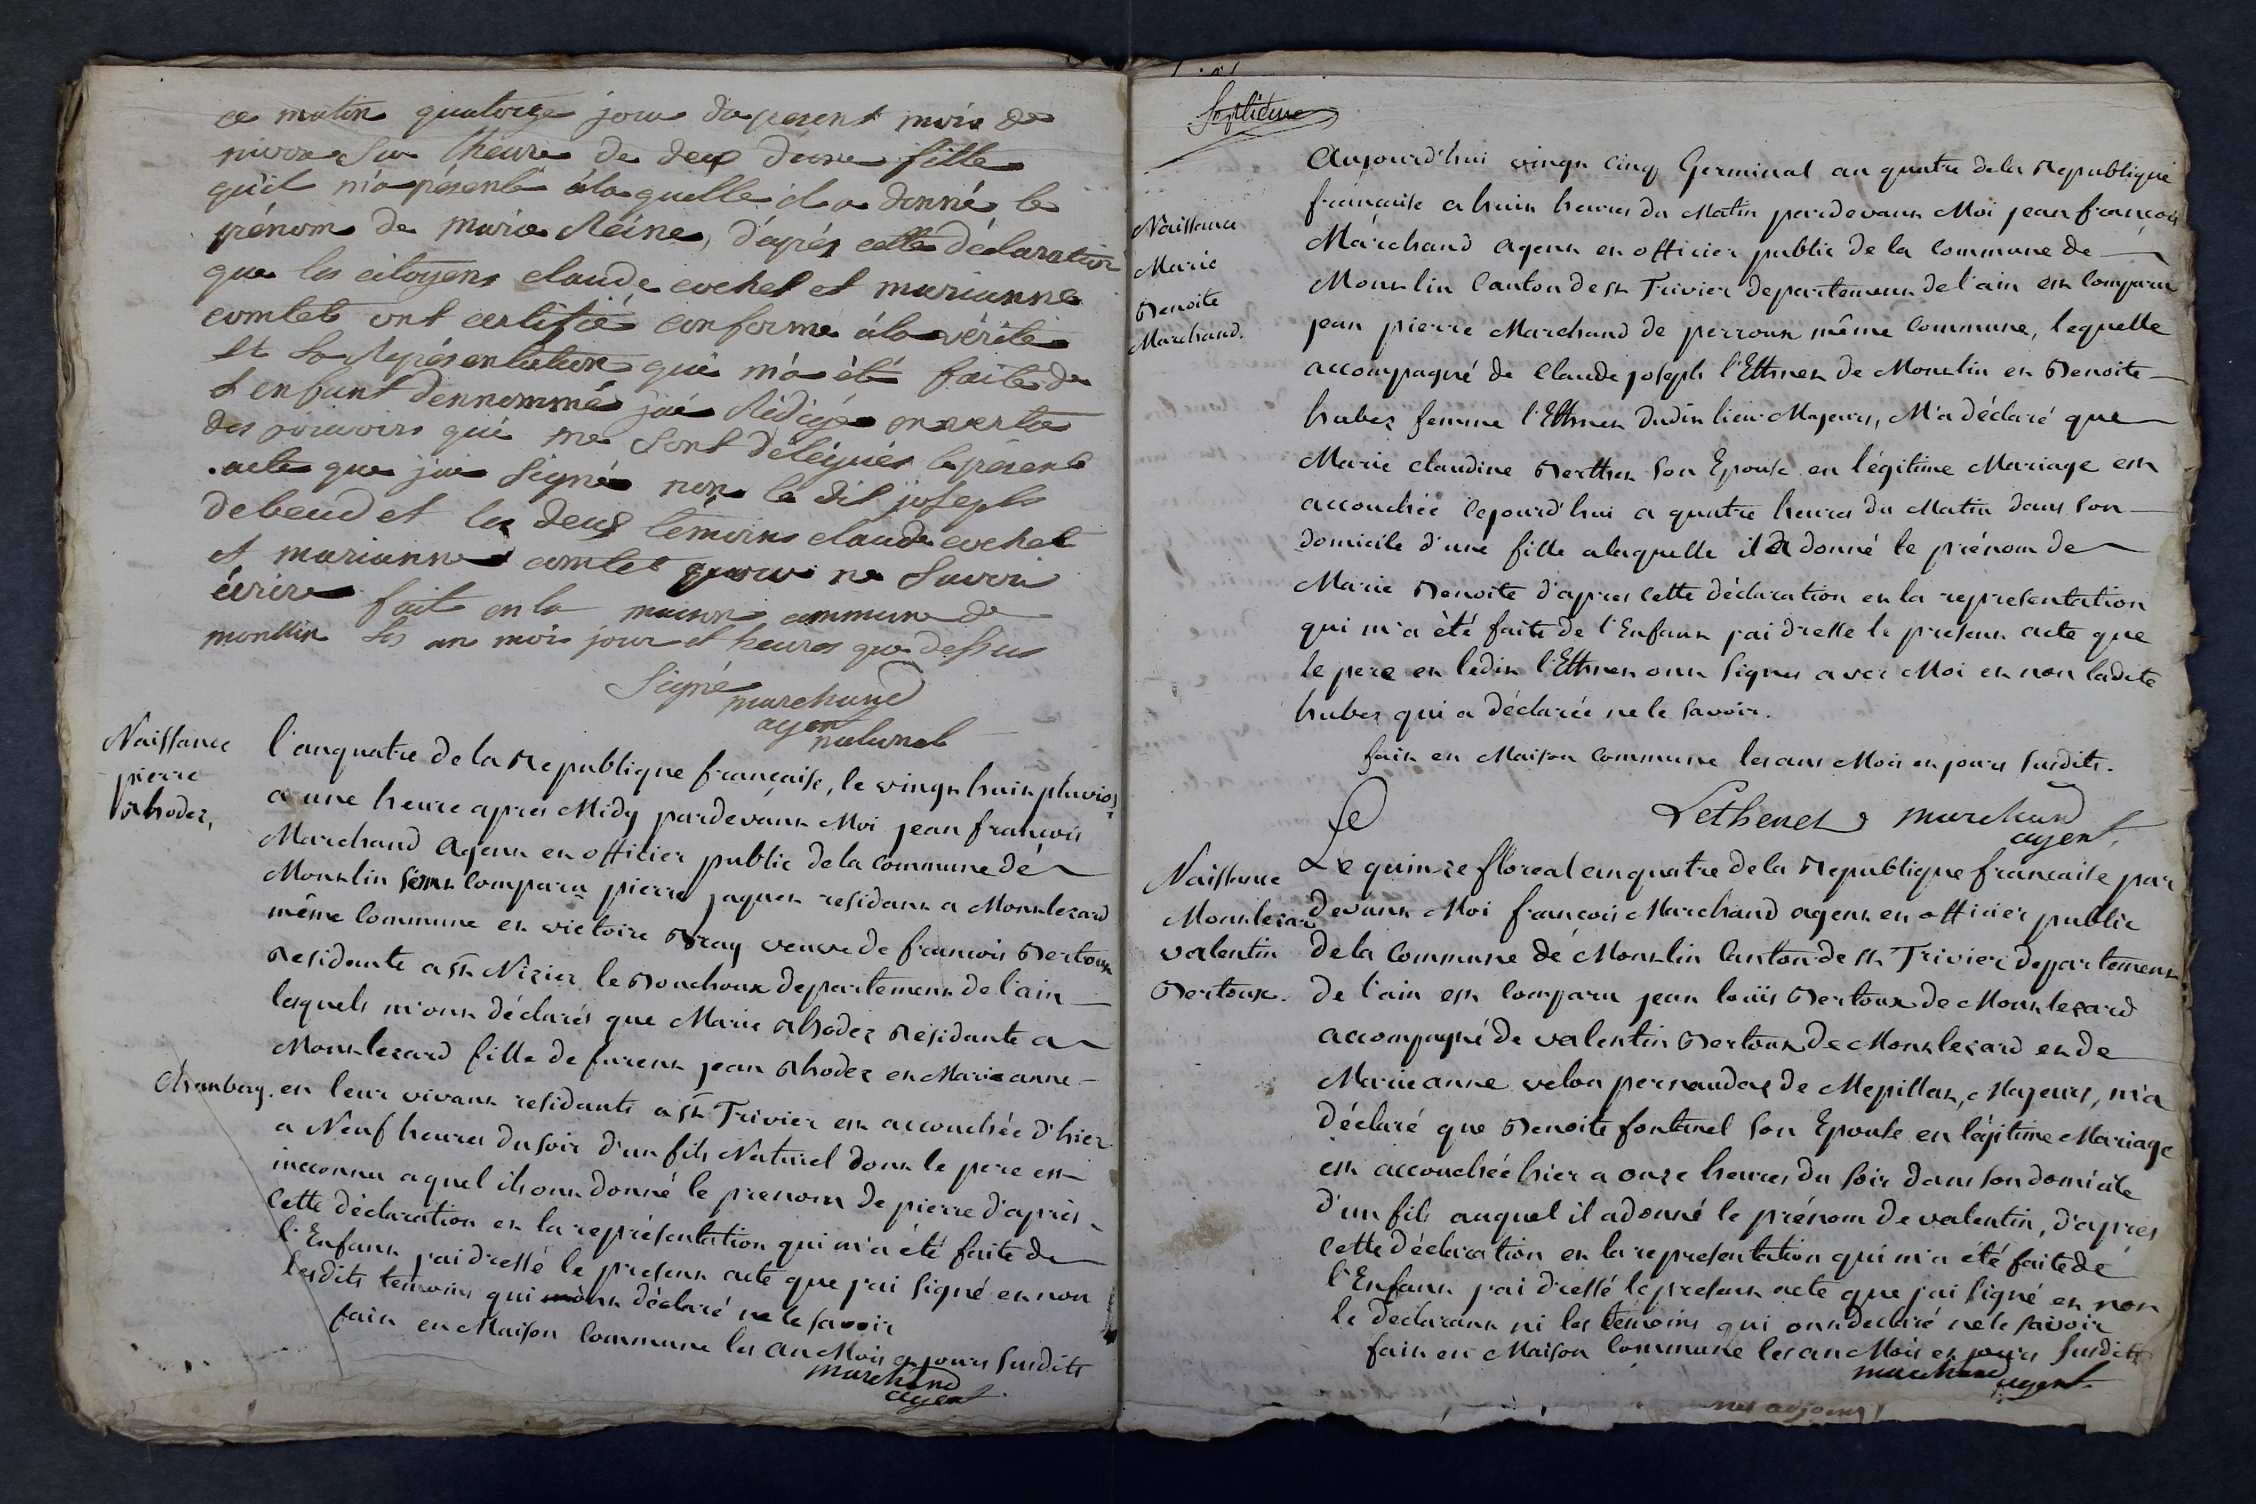 ce matin quatorze jour du présent mois de
nivose sur lheure de deux d'une fille
qu'il m'a présenté à la quelle il a donné le
prénom de marie Reine, d'après cette déclaration
que les citoyens claude cochet et marianne
comtet ont certifié conforme à la vérité
et la Représentation qui m'a été faite de
l'enfant dennommé j'ai Rédigé en vertu
des pouvoirs qui me sont délégués le présent
acte que j'ai Signé non le dit joseph
debeaud et les deux témoins claude cochet
et marianne comtet pour ne Savoir
écrire fait en la maison commune de
montlin les an mois jour et heures que dessus
Signé marchand
agent
national
Naissance
pierre
Rhodez,
l'an quatre de la Republique française, le vingt huit pluviose
a une heure apres Midy pardevant Moi jean françois
Marchand Agent et officier public de la commune de
Montlin sont Comparu pierre jaquet residant a Montlezard
même Commune et victoire Bray veuve de francois Bertoux
Residante a St Nizier le Bouchoux departement de l'ain
lesquels m'ont déclarés que Marie Rhodez Residante a
Montlezard fille de furent jean Rhodez et Marie anne
Chambary. en leur vivant residants a St Trivier est accouchée d'hier
a Neuf heures du soir d'un fils Naturel dont le pere est
inconnu aquel ils ont donné le prenom de pierre d'après
Cette déclaration et la représentation qui m'a été faite de
l'Enfant j'ai dressé le present acte que j'ai signé et non
Lesdits temoins qui m'ont déclaré ne le savoir
fait en Maison Commune les an Mois et jours Susdits
marchand
agent
Septième
Naissance
Marie
Benoite
Marchand.
Aujourd'hui vingt cinq Germinal an quatre de la Republique
française a huit heures du Matin pardevant Moi jean françois
Marchand Agent et officier public de la Commune de
Montlin Canton de St Trivier departement de l'ain est Comparu
jean pierre Marchand de perroux même Commune, lequelle
accompagné de Claude joseph l'Ethenet de Montlin et Benoite
hubez femme l'Ethenet dudit lieu Majeurs, M'a déclaré que
Marie claudine Berthet Son Epouse en légitime Mariage est
accouchée cejourd'hui a quatre heures du Matin dans son
domicile d'une fille a laquelle il a donné le prénom de
Marie Benoite d'apres Cette déclaration et la representation
qui m'a été faite de l'Enfant j'ai dresse le present acte que
le pere et ledit l'Ethenet ont signés avec Moi et non ladite
hubez qui a déclarée ne le savoir.
fait en Maison Commune les ans Mois et jours susdits.
Lethenet marchand
agent,
Le
Naissance
Montlezard
valentin
Bertoux.
Le quinze floreal an quatre de la Republique francaise par
devant Moi francois Marchand agent et officier public
de la Commune de Montlin Canton de St Trivier departement
de l'ain est Comparu jean louis Bertoux de Montlezard
accompagné de valentin Bertoux de Montlezard et de
Marie anne velon pernaudas de Mepillat, Majeurs, m'a
déclaré que Benoite fontanel Son Epouse en légitime Mariage
est accouchée hier a onze heures du soir dans son domicile
d'un fils auquel il a donné le prénom de valentin, d'apres
Cette déclaration et la representation qui m'a été faite de
l'Enfant j'ai dressé le present acte que j'ai signé et non
le declarant ni les témoins qui ont declaré ne le savoir
fait en Maison Commune les an Mois et jours Susdits
marchand agent